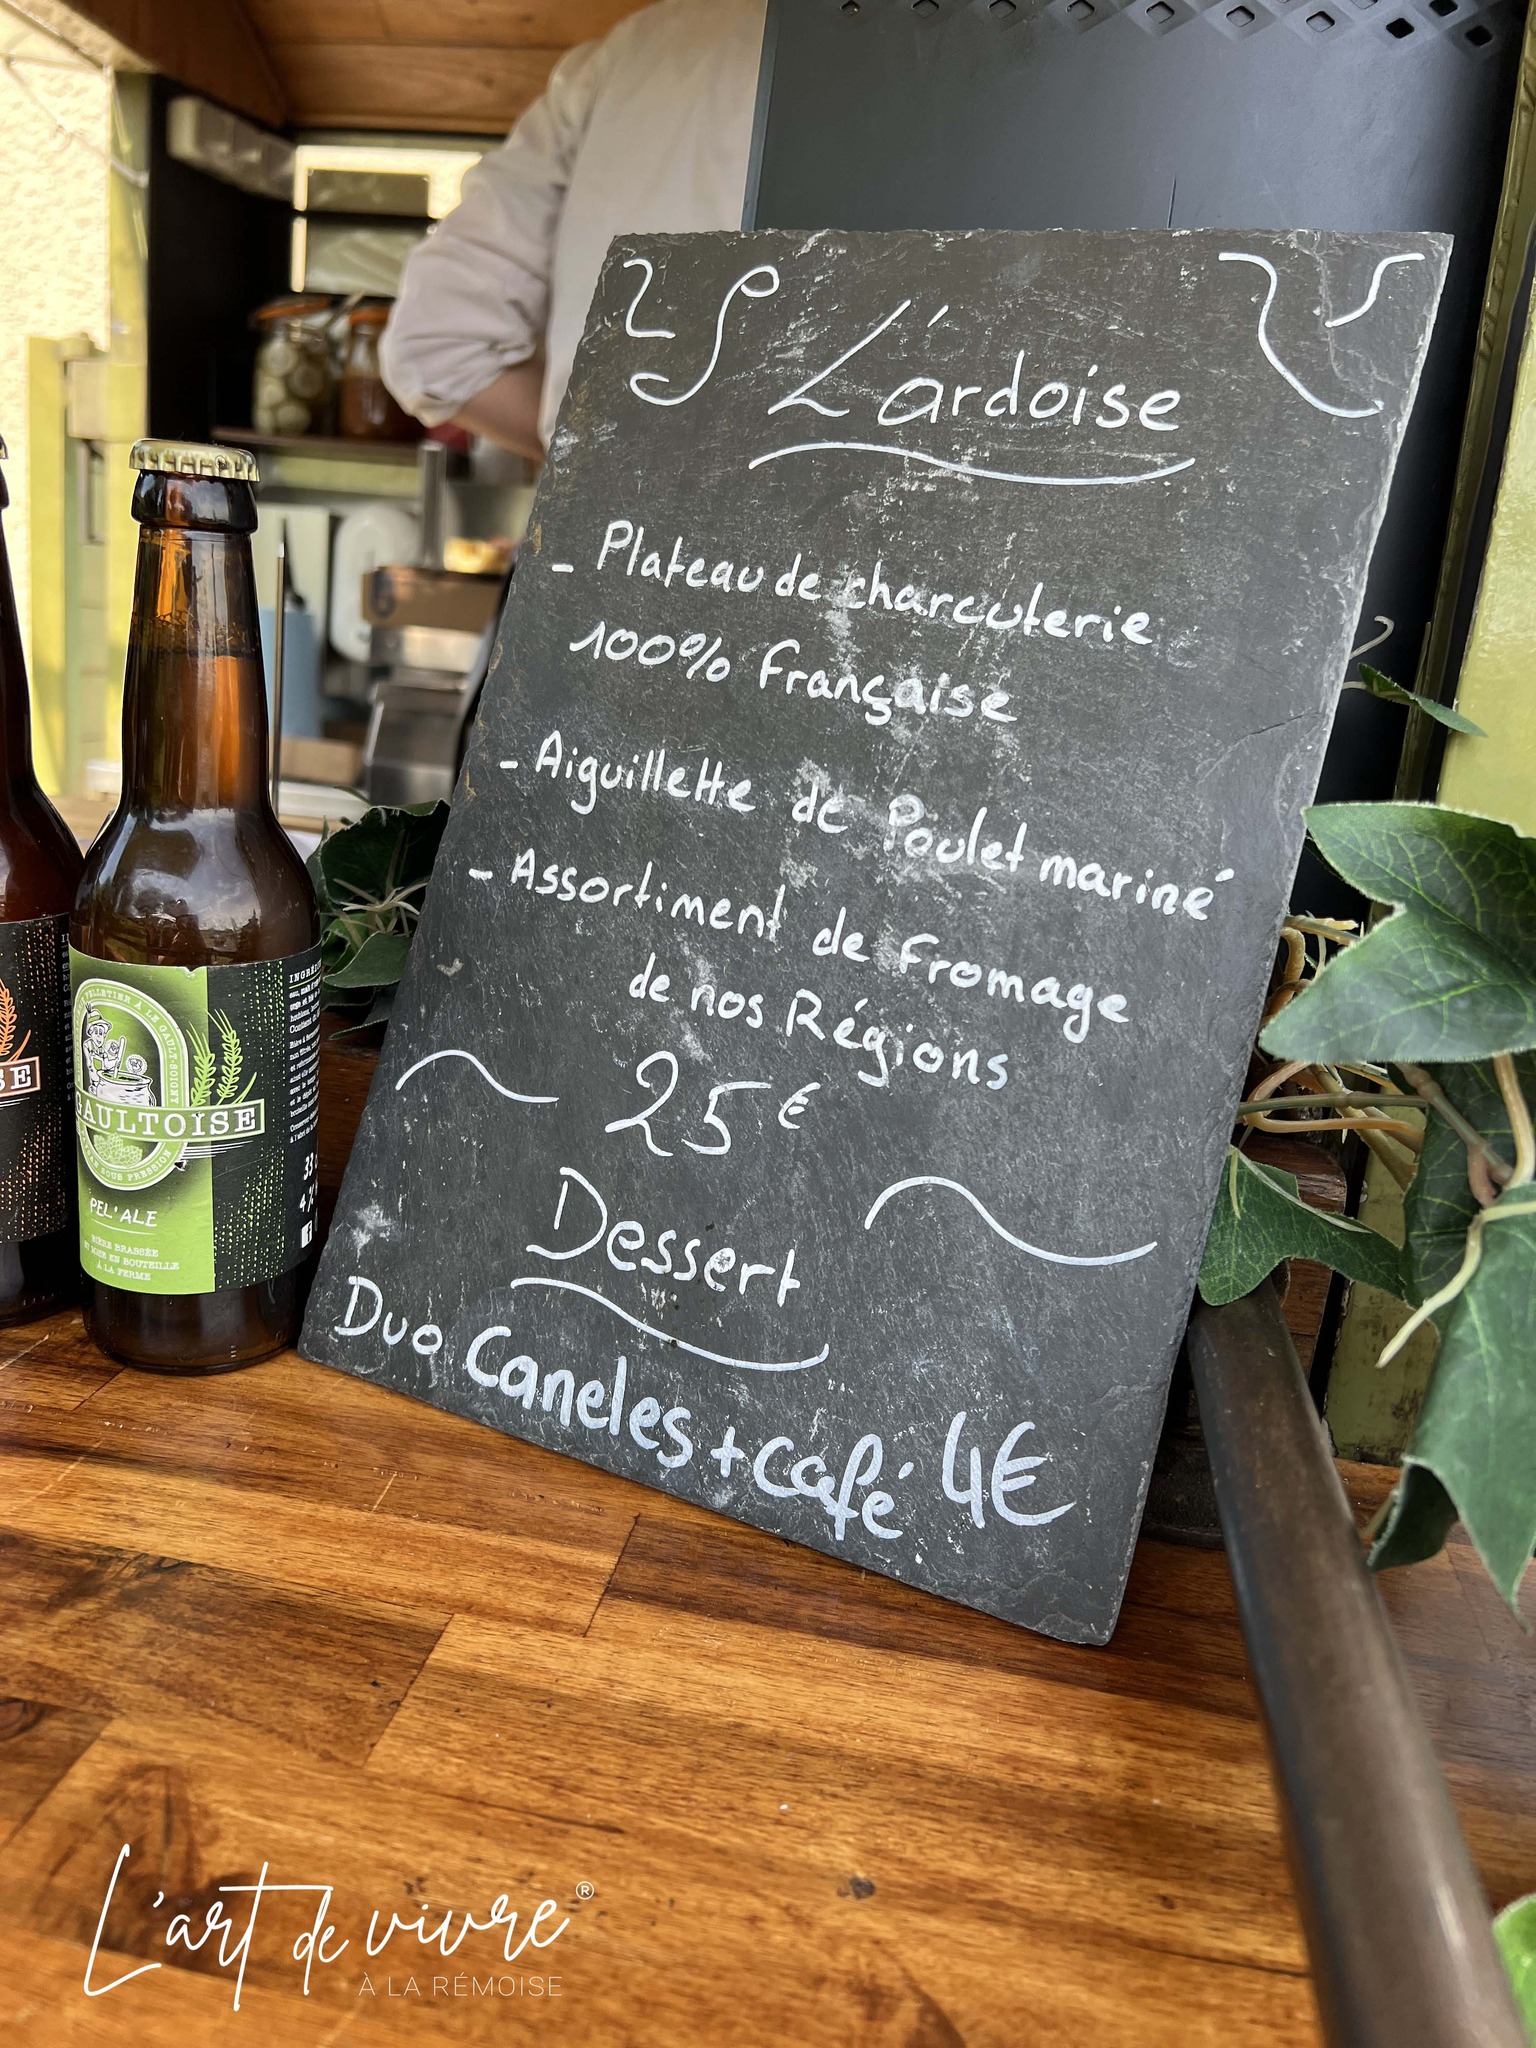 L'ardoise
- Plateau de charcuterie
100% française
- Aiguillette de Poulet mariné
- Assortiment de fromage
de nos Régions
25€
Dessert
Duo Caneles + Café 4€
PELLETIER À LE GAULT-SOIGNY
GAULTOISE
SOUS PRESSION
PEL'ALE
BIÈRE BRASSÉE
ET MISE EN BOUTEILLE
À LA FERME
33
4
SE
L'art de vivre®
À LA RÉMOISE